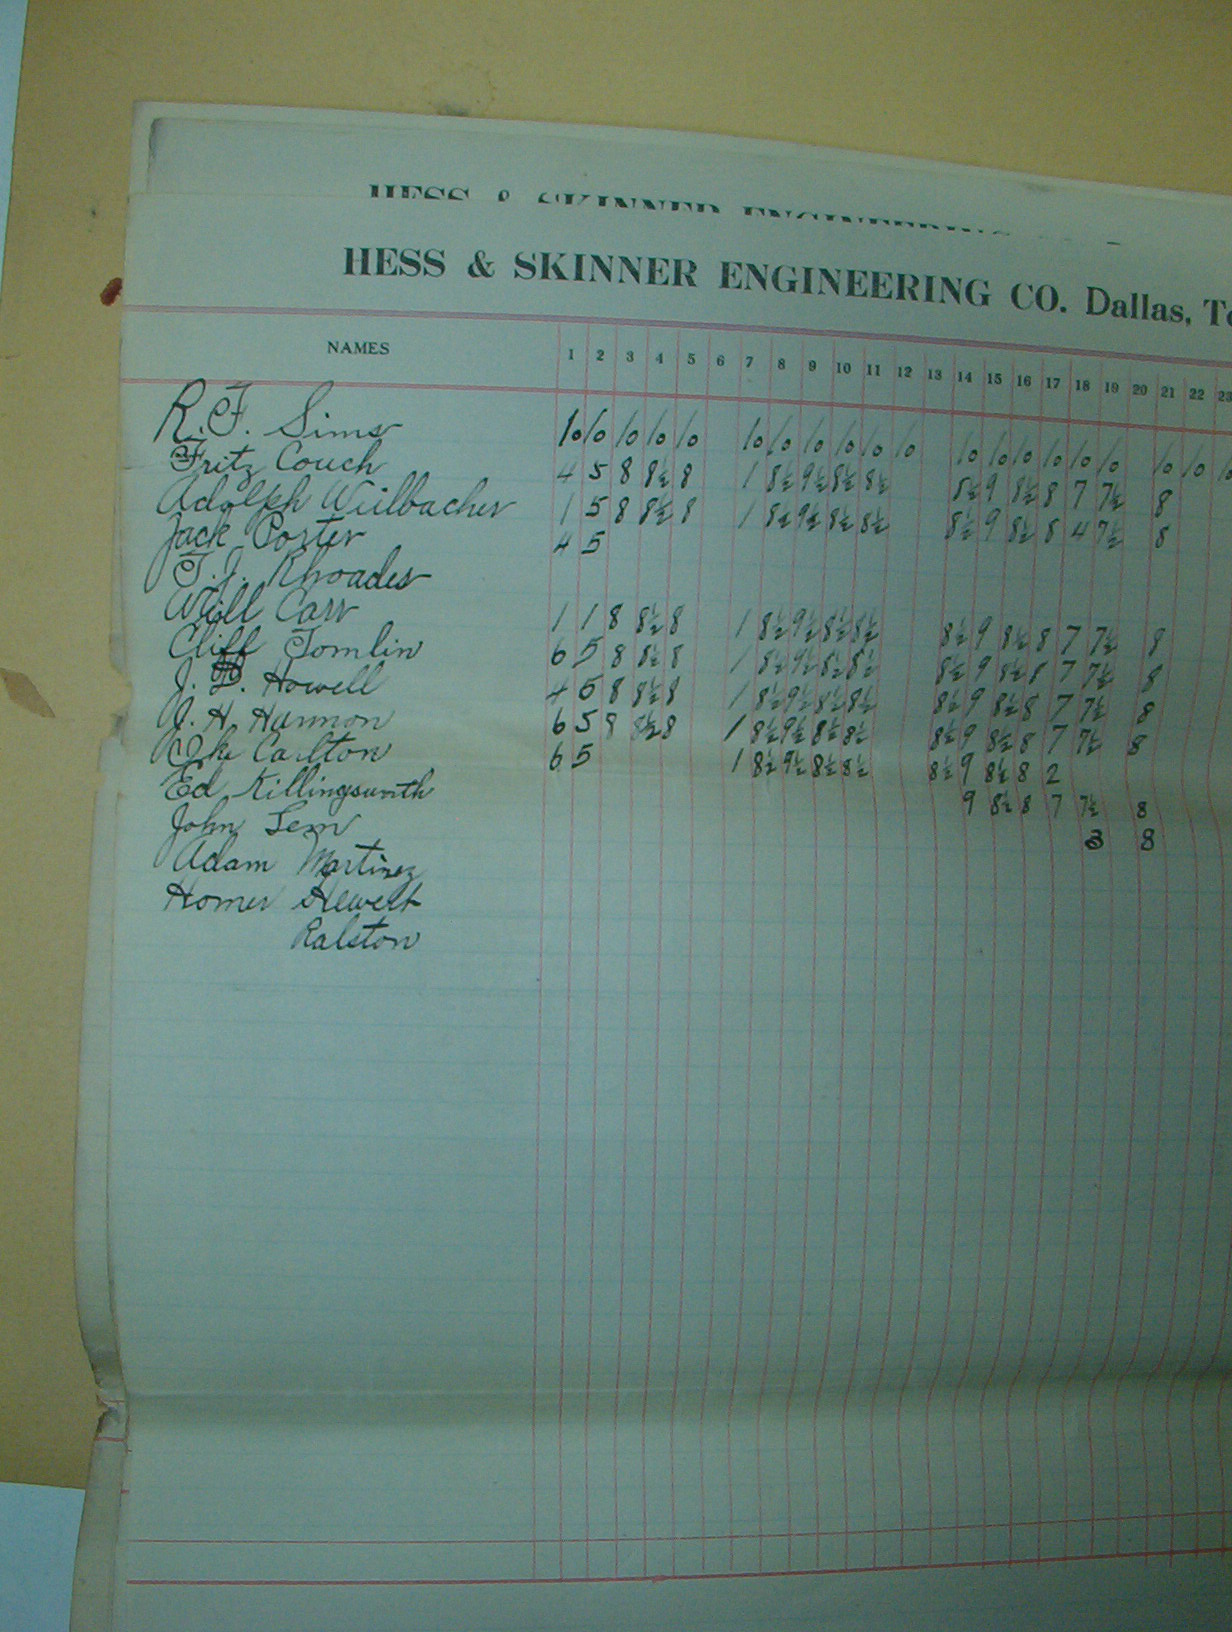 HESS & SKINNER ENGINEERING
HESS & SKINNER ENGINEERING CO. Dallas, Te
NAMES 1 2 3 4 5 6 7 8 9 10 11 12 13 14 15 16 17 18 19 20 21 22 23
R. F. Sims 10 10 10 10 10 10 10 10 10 10 10 10 10 10 10 10 10 10 10 10
Fritz Couch 4 5 8 8½ 8 1 8½ 9½ 8½ 8½ 8½ 9 8½ 8 7 7½ 8
Adolph Wiilbacher 1 5 8 8½ 8 1 8½ 9½ 8½ 8½ 8½ 9 8½ 8 4 7½ 8
Jack Porter 4 5
T. J. Rhoades
Will Carr 1 1 8 8½ 8 1 8½ 9½ 8½ 8½ 8½ 9 8½ 8 7 7½ 8
Cliff Tomlin 6 5 8 8½ 8 1 8½ 9½ 8½ 8½ 8½ 9 8½ 8 7 7½ 8
J. Howell 4 5 8 8½ 8 1 8½ 9½ 8½ 8½ 8½ 9 8½ 8 7 7½ 8
J. H. Harmon 6 5 8 8½ 8 1 8½ 9½ 8½ 8½ 8½ 9 8½ 8 7 7½ 8
Carlton 6 5 1 8½ 9½ 8½ 8½ 8½ 9 8½ 8 2
Ed Killingsworth 9 8½ 8 7 7½ 8
John Lem 3 8
Adam Martinez
Homer Hewett
Ralston